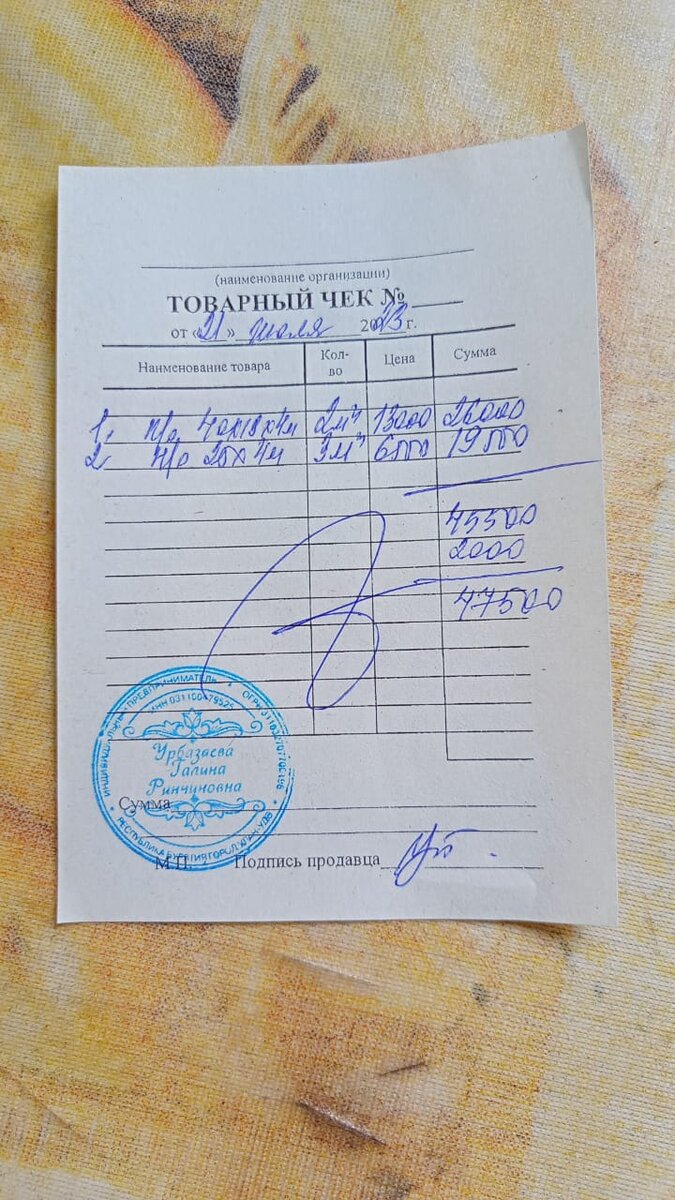 (наименование организации)
ТОВАРНЫЙ ЧЕК №
от «21» июля 2023 г.
Наименование товара Кол-во Цена Сумма
1. п/о 40х18х4м 2м³ 13000 26000
2 н/о 25х4м 3м³ 19500
45500
2000
47500
ИНДИВИДУАЛЬНЫЙ ПРЕДПРИНИМАТЕЛЬ
Урбазаева
Галина
Ринчиновна
РЕСПУБЛИКА БУРЯТИЯ ГОРОД УЛАН-УДЭ
Сумма
М.П. Подпись продавца